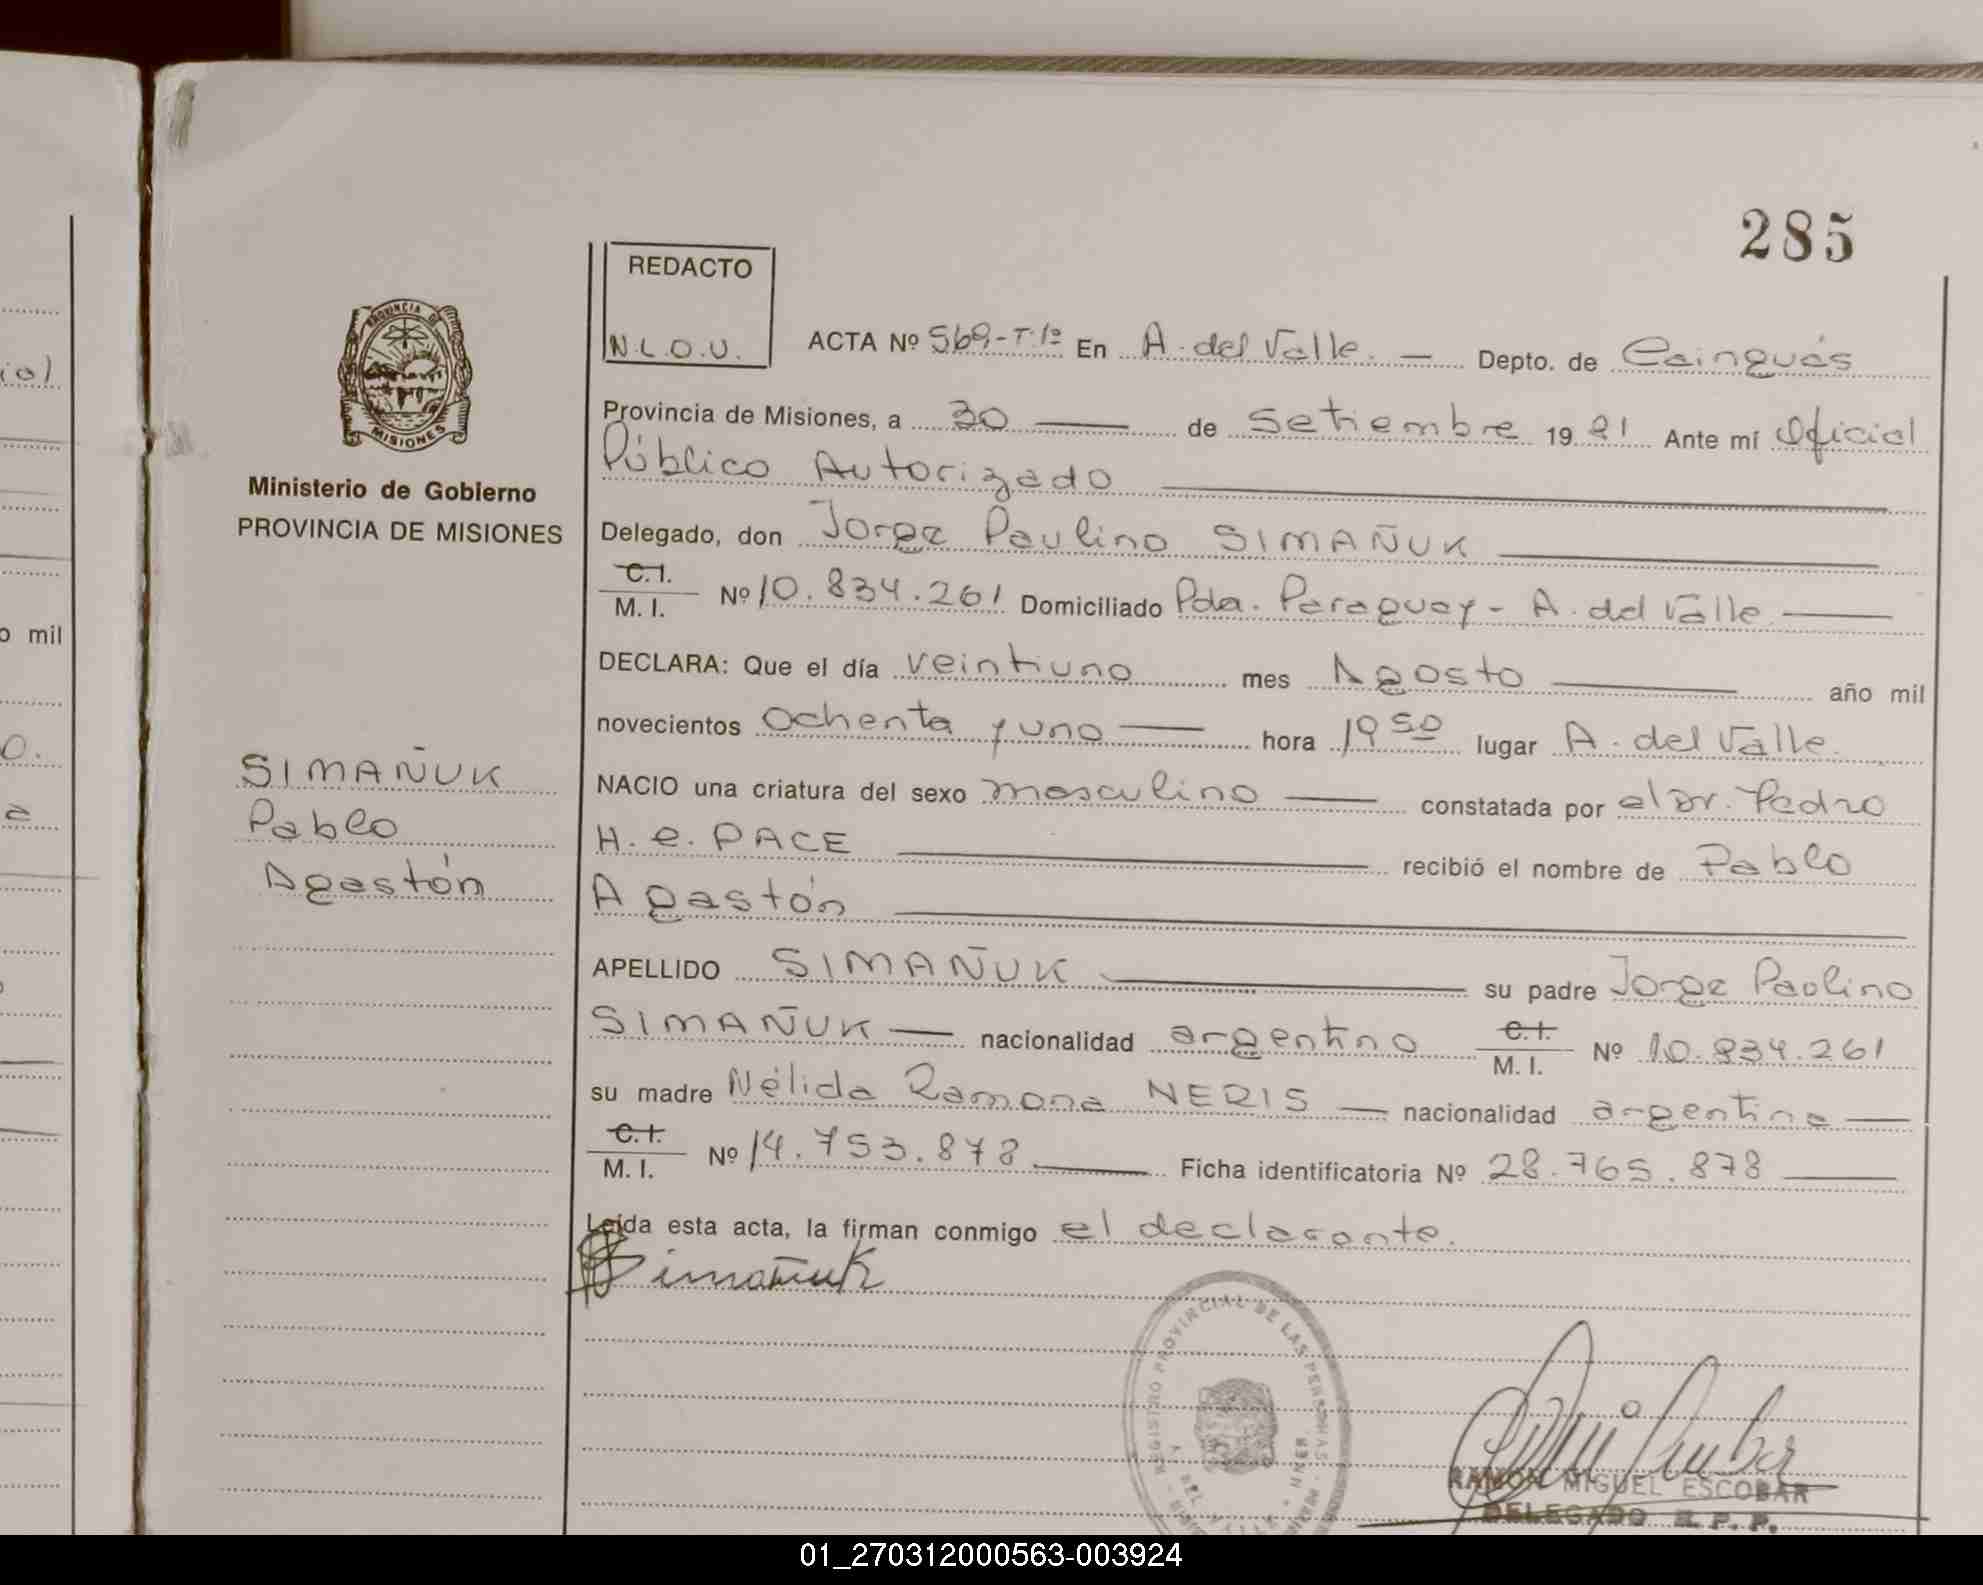 285
REDACTO
N.L.O.U.
PROVINCIA DE
MISIONES
Ministerio de Gobierno
PROVINCIA DE MISIONES
ACTA Nº 569-T.1º En A. del Valle. — Depto. de Cainguás
Provincia de Misiones, a 30 — de Setiembre 1981 Ante mí Oficial
Público Autorizado
Delegado, don Jorge Paulino SIMAÑUK
C.I.
M. I. Nº 10.834.261 Domiciliado Pda. Paraguay - A. del Valle
DECLARA: Que el día veintiuno mes Agosto — año mil
novecientos ochenta y uno — hora 19 50 lugar A. del Valle.
NACIO una criatura del sexo masculino — constatada por el Dr. Pedro
H. C. PACE — recibió el nombre de Pablo
Agastón
APELLIDO SIMAÑUK — su padre Jorge Paolino
SIMAÑUK — nacionalidad argentino C.I.
M. I. Nº 10.834.261
su madre Nélida Ramona NERIS — nacionalidad argentina —
C.I.
M. I. Nº 14.753.878 — Ficha identificatoria Nº 28.765.878 —
Leída esta acta, la firman conmigo el declarante.
Simañuk
SIMAÑUK
Pablo
Agastón
REGISTRO PROVINCIAL DE LAS PERSONAS
A. DEL VALLE
RAMON MIGUEL ESCOBAR
DELEGADO R. P. P.
io)
o mil
o.
a
01_270312000563-003924